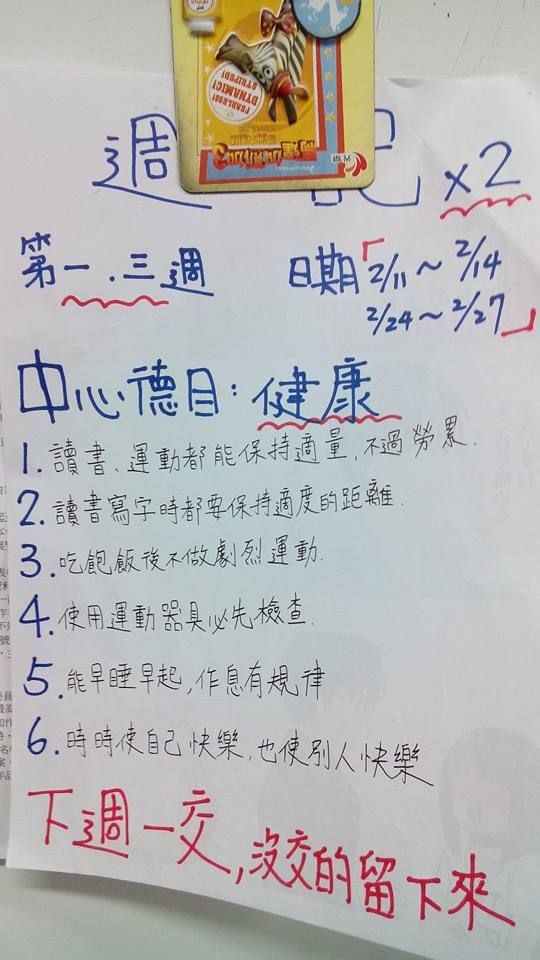 FEARLESS!
DYNAMIC!
STRIPED!
馬達加斯加3
週記 x2
第一.三週
日期「2/11~2/14
2/24~2/27」
中心德目:健康
1.讀書、運動都能保持適量,不過勞累.
2.讀書寫字時都要保持適度的距離.
3.吃飽飯後不做劇烈運動.
4.使用運動器具必先檢查.
5.能早睡早起,作息有規律
6.時時使自己快樂,也使別人快樂
下週一交,沒交的留下來